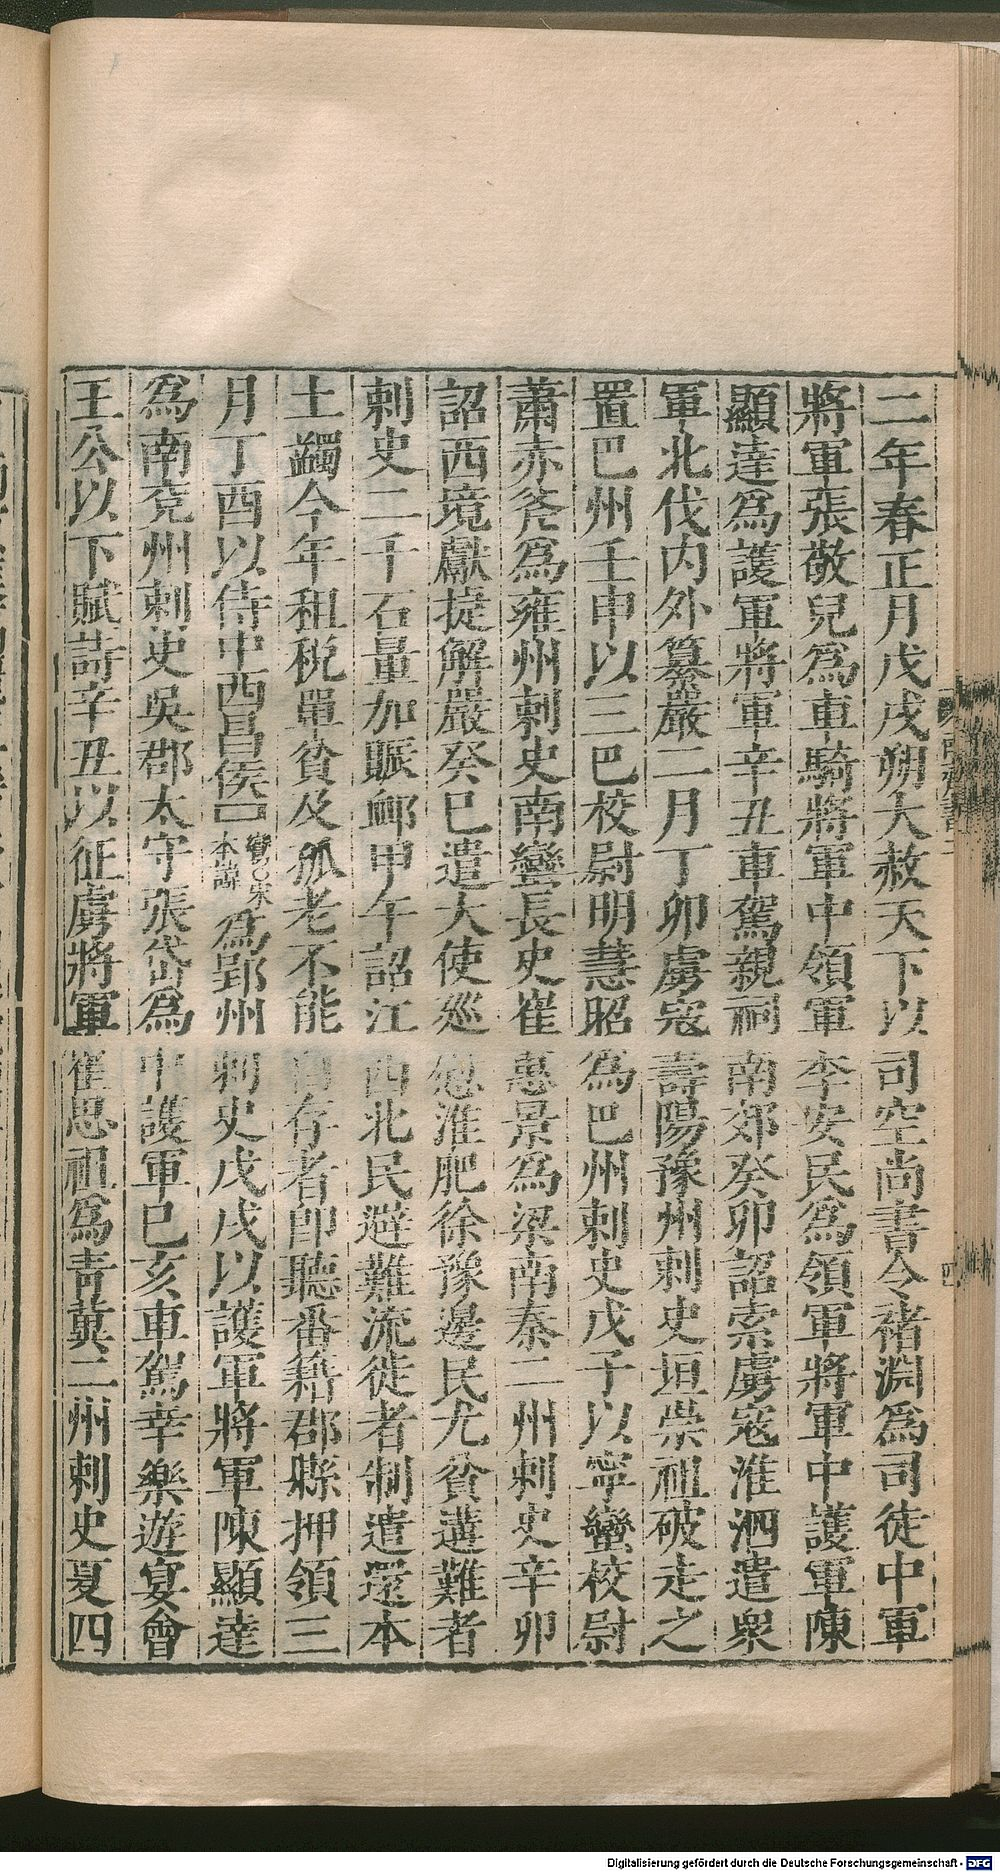 二年春正月戊戌朔大赦天下以司空尚書令褚淵爲司徒中軍
將軍張敬兒爲車騎將軍中領軍李安民爲領軍將軍中護軍陳
顯達爲護軍將軍辛丑車駕親祠南郊癸卯詔索虜寇淮泗遣衆
軍北伐内外纂嚴二月丁卯虜寇壽陽豫州刺史垣崇祖破走之
置巴州壬申以三巴校尉明慧昭爲巴州刺史戊子以寧蠻校尉
蕭赤斧爲雍州刺史南蠻長史崔惠景爲梁南秦二州刺史辛卯
詔西境獻捷解嚴癸巳遣大使巡慰淮肥徐豫邊民尤貧遘難者
刺史二千石量加賑卹甲午詔江西北民避難流徙者制遣還本
土蠲今年租稅單貧及孤老不能自存者卽聽番籍郡縣押領三
月丁酉以侍中西昌侯鸞○宋本諱爲郢州刺史戊戌以護軍將軍陳顯達
爲南兗州刺史吳郡太守張岱爲中護軍己亥車駕幸樂遊宴會
王公以下賦詩辛丑以征虜將軍崔思祖爲青冀二州刺史夏四
四
Digitalisierung gefördert durch die Deutsche Forschungsgemeinschaft - DFG